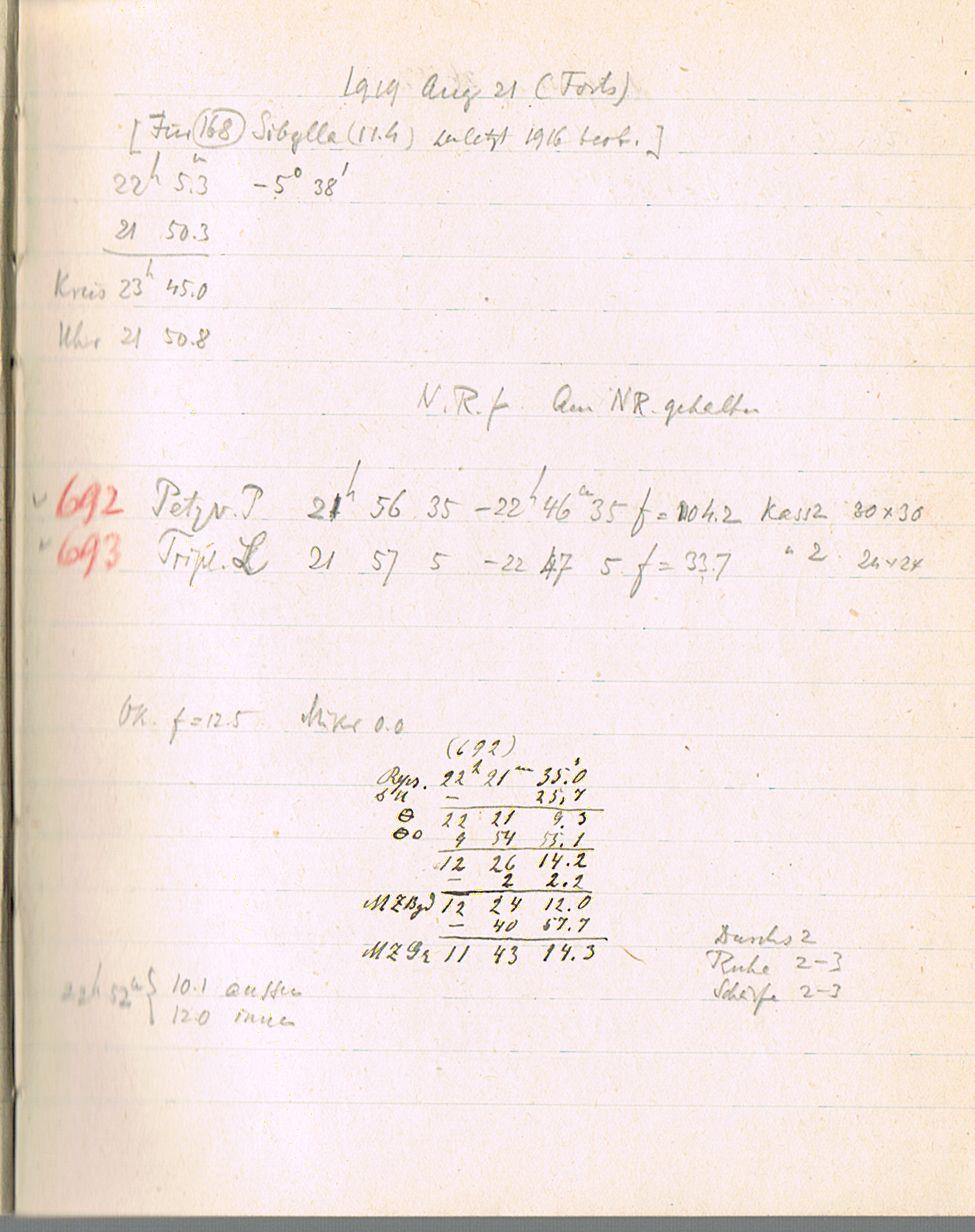 1919 Aug 21 (Forts)
[Für (168) Sibylla (11.4) zuletzt 1916 beob.]
22h 5.3m −5° 38'
21 50.3
Kreis 23h 45.0
Uhr 21 50.8
N.R.f. Am NR. gehalten
692 Petzv. P 21h 56 35 −22h 46m 35 f = 104.2 Kass 2 30×30
693 Tripl. L 21 57 5 −22 47 5 f = 33.7 " 2 24×24
Ok. f = 12.5 Mikr 0.0
(692)
Reps. 22h 21m 35.s0
δu − 25.7
θ 22 21 9.3
θ0 9 54 55.1
12 26 14.2
− 2 2.2
MZBgd 12 24 12.0
− 40 57.7
MZGr 11 43 14.3
Durchs 2
Ruhe 2–3
Schärfe 2–3
22h 52m { 10.1 aussen
12.0 innen